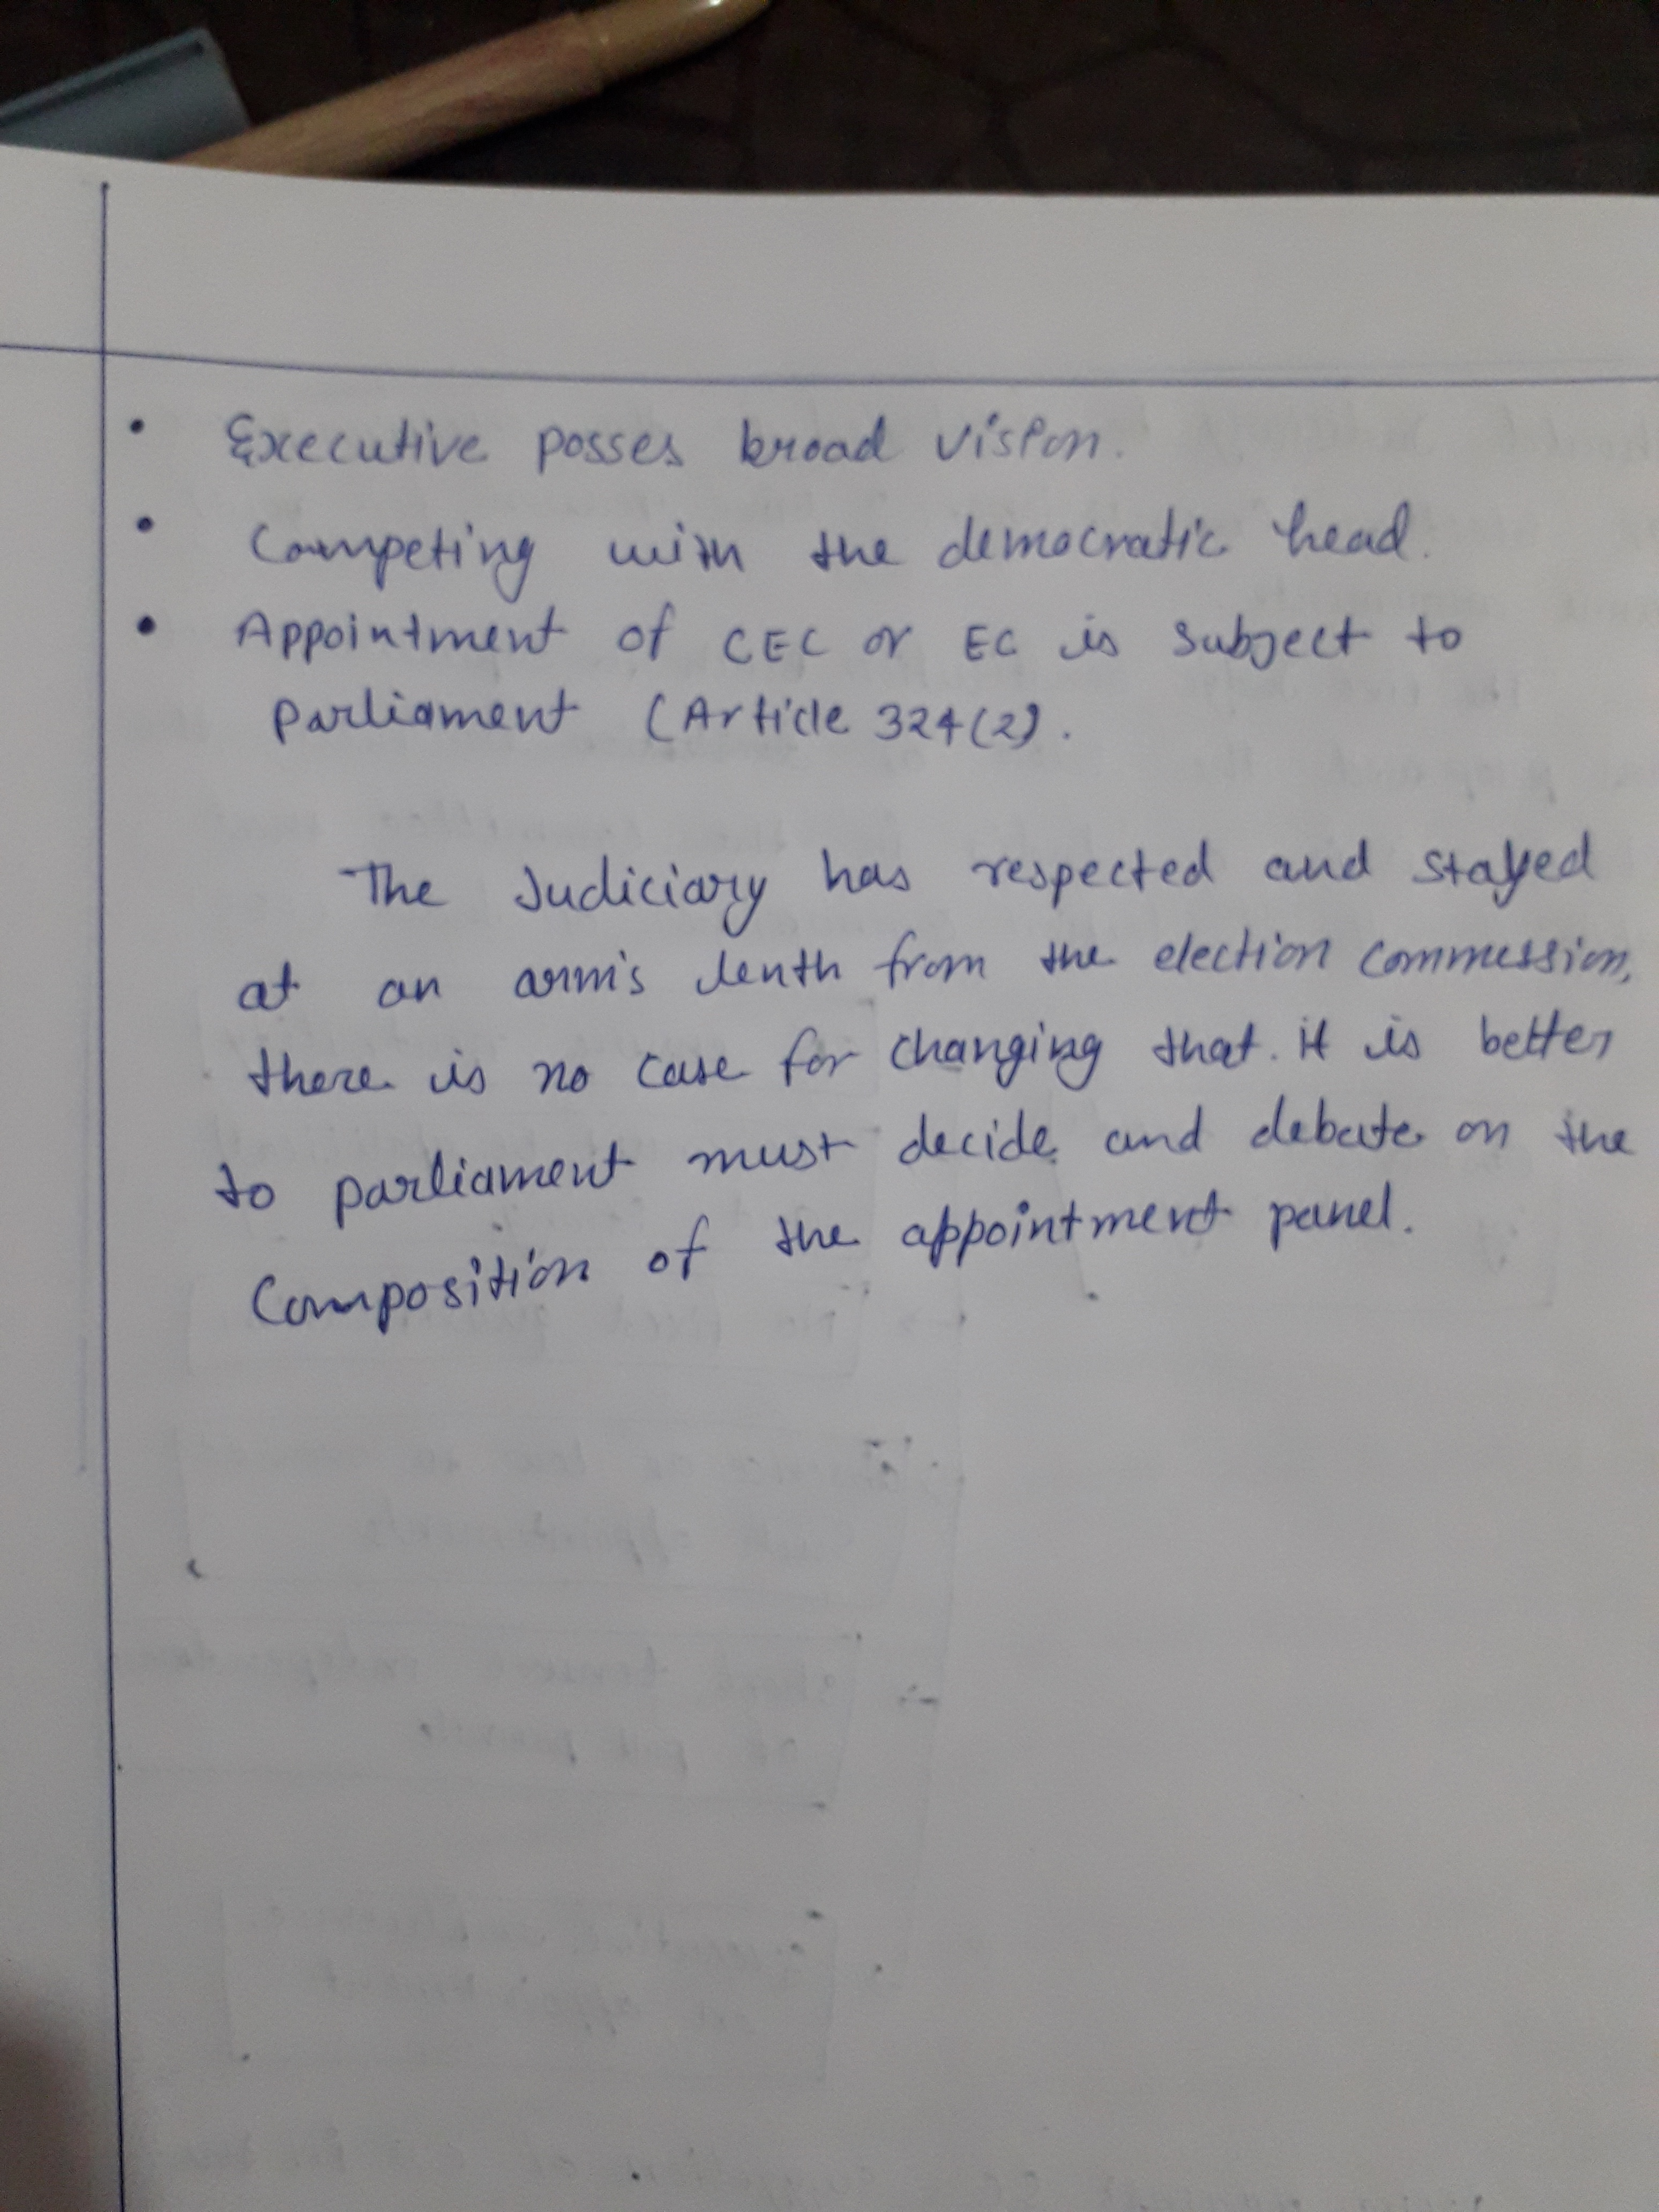 • Executive posses broad vision.
• Competing with the democratic head.
• Appointment of CEC or EC is subject to
parliament (Article 324(2).
The Judiciary has respected and stayed
at an arm's lenth from the election commession,
there is no case for changing that. it is better
to parliament must decide and debate on the
Composition of the appointment panel.